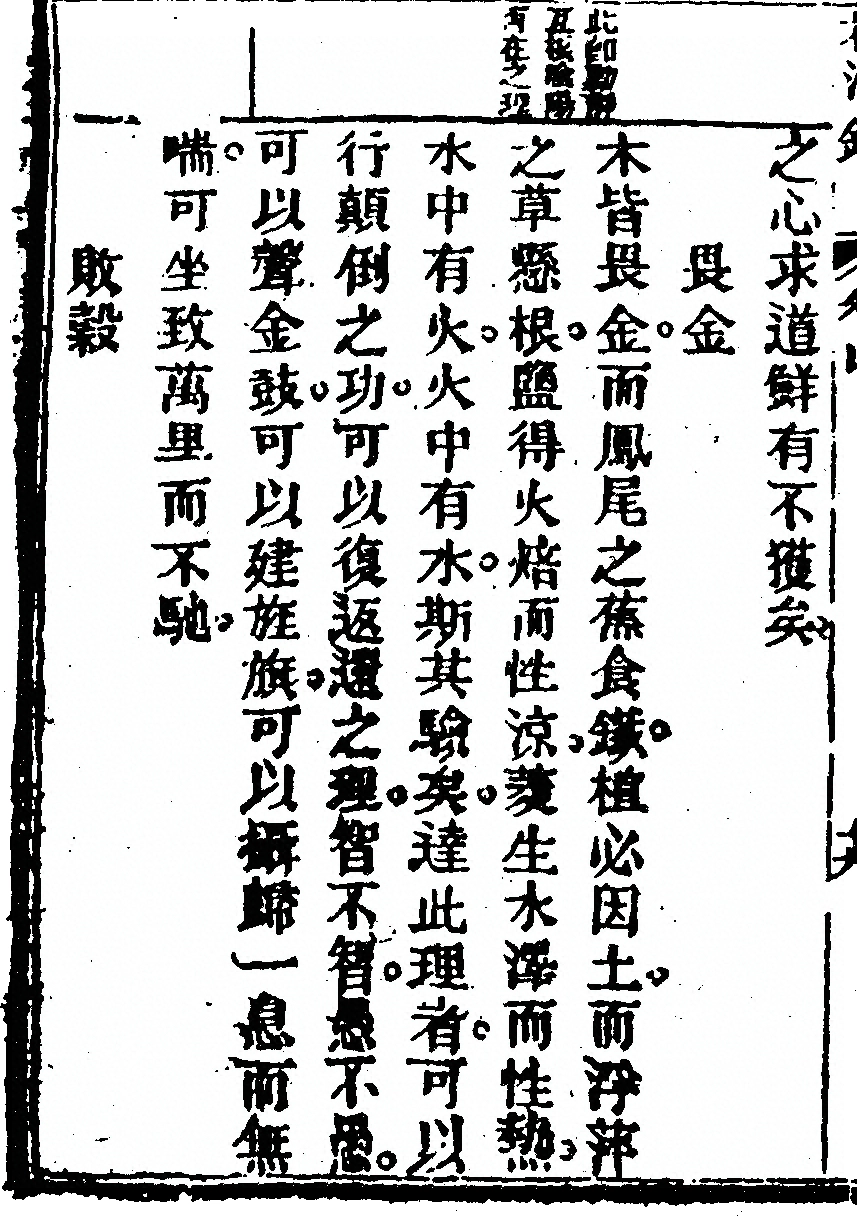 之心求道鮮有不獲矣。
畏金
此卽動靜
互根陰陽
在之理
木皆畏金。而鳳尾之蕉食鐵。植必因土。而浮萍
之草懸根。鹽得火焙而性涼。菱生水澤而性熱。
水中有火。火中有水。斯其驗矣。達此理者。可以
行顛倒之功。可以復返還之理。智不智。愚不愚。
可以聲金鼓。可以建旌旗。可以攝歸一息而無
喘。可坐致萬里而不馳。
敗穀